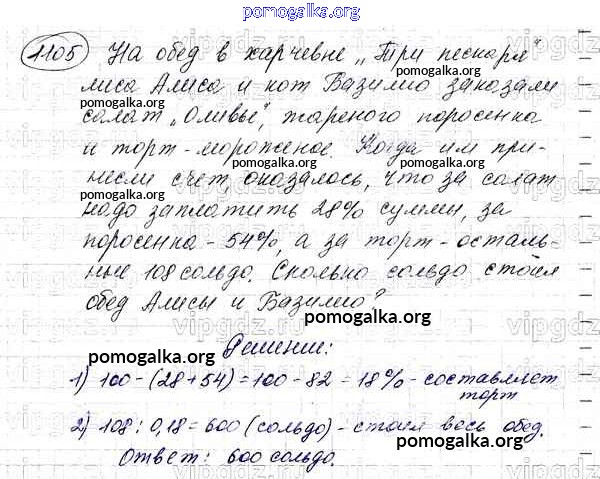 pomogalka.org
1105 На обед в харчевне „Три пескаря"
лиса Алиса и кот Базилио заказали
pomogalka.org pomogalka.org
салат „Оливье", жареного поросенка
и торт-мороженое. Когда им при-
pomogalka.org
несли счет, оказалось, что за салат
pomogalka.org pomogalka.org
надо заплатить 28% суммы, за
поросенка - 54%, а за торт - осталь-
ные 108 сольдо. Сколько сольдо стоил
pomogalka.org
обед Алисы и Базилио?
pomogalka.org
Решение:
pomogalka.org
1) 100-(28+54)=100-82=18% - составляет
торт
pomogalka.org
2) 108:0,18=600 (сольдо) - стоил весь обед.
pomogalka.org
Ответ: 600 сольдо.
pomogalka.org